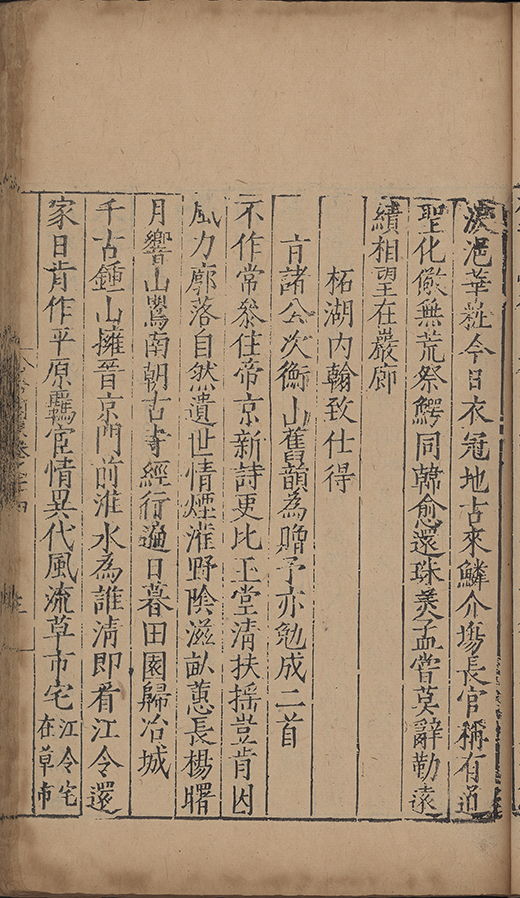 浥華粧今日衣冠地古來鱗介塲長官稱有道
聖化無荒祭鰐同韓愈還珠羨孟嘗莫辭勒遠
績相望在巖廊
柘湖内翰致仕得
肓諸公次衡山舊韻為贈予亦勉成二首
不作常參住帝京新詩更比玉堂清扶揺豈肯因
風力廓落自然遺世情煙灌野陰滋畝蕙長楊曙
月響山鶯南朝古寺經行遍日暮田園歸冶城
千古鍾山擁晉京門前淮水為誰清即看江令還
家日肯作平原羈宦情異代風流草市宅江令宅在草市